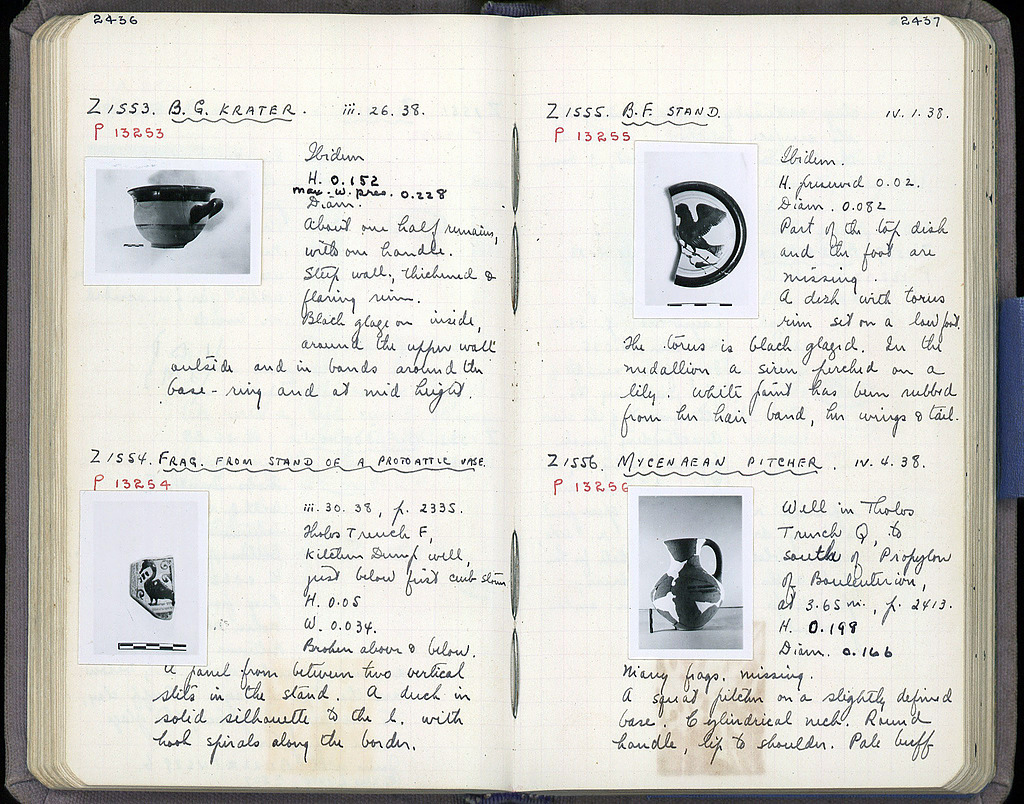 2436
Z 1553. B.G. KRATER. iii. 26. 38.
P 13253
Ibidem
H. 0.152
max. w. pres. 0.228
Diam.
About one half remains,
with one handle.
Steep wall, thickened &
flaring rim.
Black glaze on inside,
around the upper wall
outside and in bands around the
base-ring and at mid height.
Z 1554. FRAG. FROM STAND OF A PROTOATTIC VASE.
P 13254
iii. 30. 38, p. 2335.
Tholos Trench F,
Kitchen Dump well,
just below first curb stone
H. 0.05
W. 0.034.
Broken above & below.
A panel from between two vertical
slits in the stand. A duck in
solid silhouette to the l. with
hook spirals along the border.
2437
Z 1555. B.F. STAND. iv. 1. 38.
P 13255
Ibidem.
H. preserved 0.02.
Diam. 0.082
Part of the top dish
and the foot are
missing.
A dish with torus
rim set on a low foot.
The torus is black glazed. In the
medallion a siren perched on a
lily. White paint has been rubbed
from her hair band, her wings & tail.
Z 1556. MYCENAEAN PITCHER. iv. 4. 38.
P 13256
Well in Tholos
Trench Q, to
south of Propylon
of Bouleuterion,
at 3.65 m., p. 2413.
H. 0.198
Diam. 0.166
Many frags. missing.
A squat pitcher on a slightly defined
base. Cylindrical neck. Round
handle, lip to shoulder. Pale buff